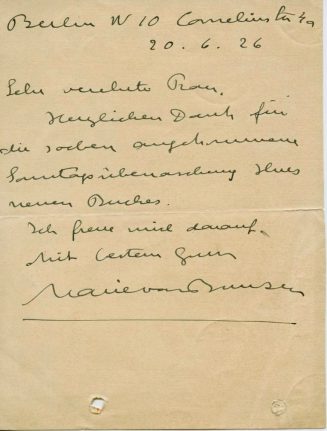 Berlin W 10 Corneliusstr 4a
20.6.26
Sehr verehrte Frau,
Herzlichen Dank für
die soeben angekommene
Sonntagsüberraschung Ihres
neuen Buches.
Ich freue mich darauf.
Mit bestem Gruss
Marie von Bunsen